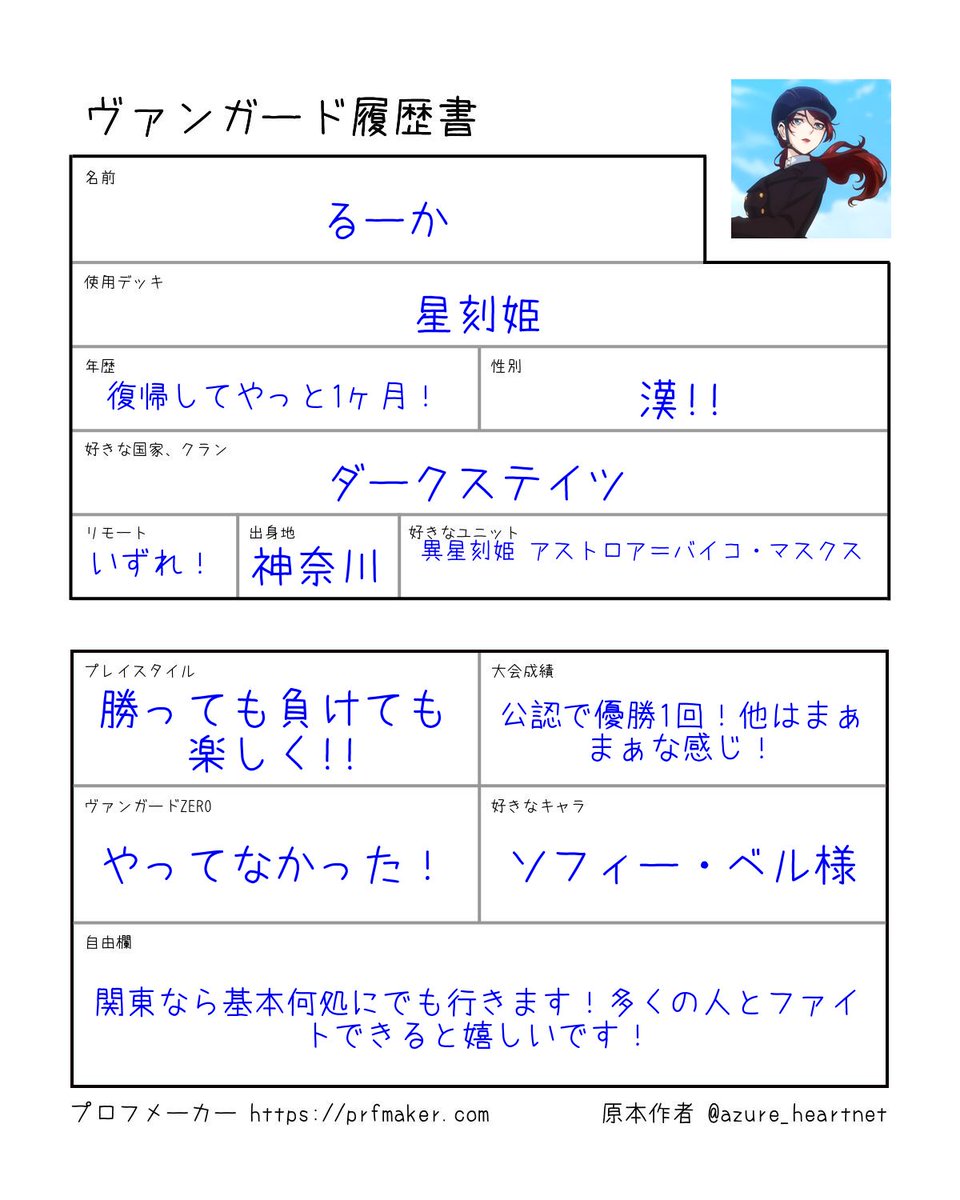 ヴァンガード履歴書
名前
るーか
使用デッキ
星刻姫
年歴
復帰してやっと1ヶ月！
性別
漢!!
好きな国家、クラン
ダークステイツ
リモート
いずれ！
出身地
神奈川
好きなユニット
異星刻姫 アストロア＝バイコ・マスクス
プレイスタイル
勝っても負けても
楽しく!!
大会成績
公認で優勝1回！他はまぁ
まぁな感じ！
ヴァンガードZERO
やってなかった！
好きなキャラ
ソフィー・ベル様
自由欄
関東なら基本何処にでも行きます！多くの人とファイ
トできると嬉しいです！
プロフメーカー https://prfmaker.com
原本作者 @azure_heartnet